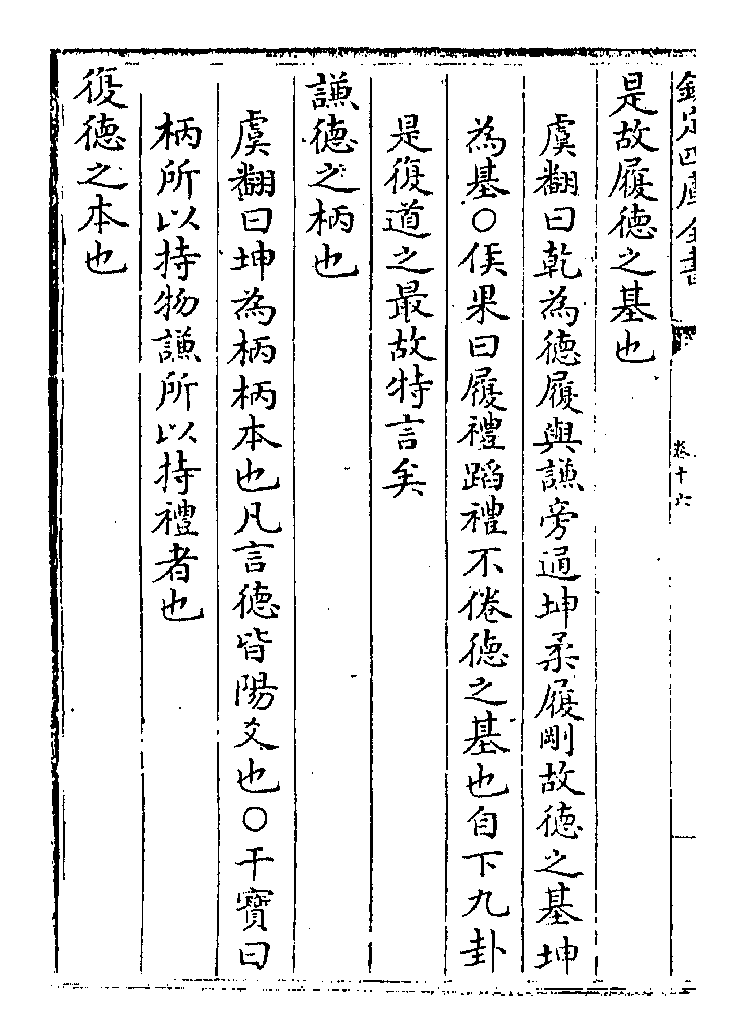 欽定四庫全書
卷十六
是故履德之基也
虞翻曰乾為德履與謙旁通坤柔履剛故德之基坤
為基〇侯果曰履禮蹈禮不倦德之基也自下九卦
是復道之最故特言矣
謙德之柄也
虞翻曰坤為柄柄本也凡言德皆陽爻也〇干寶曰
柄所以持物謙所以持禮者也
復德之本也